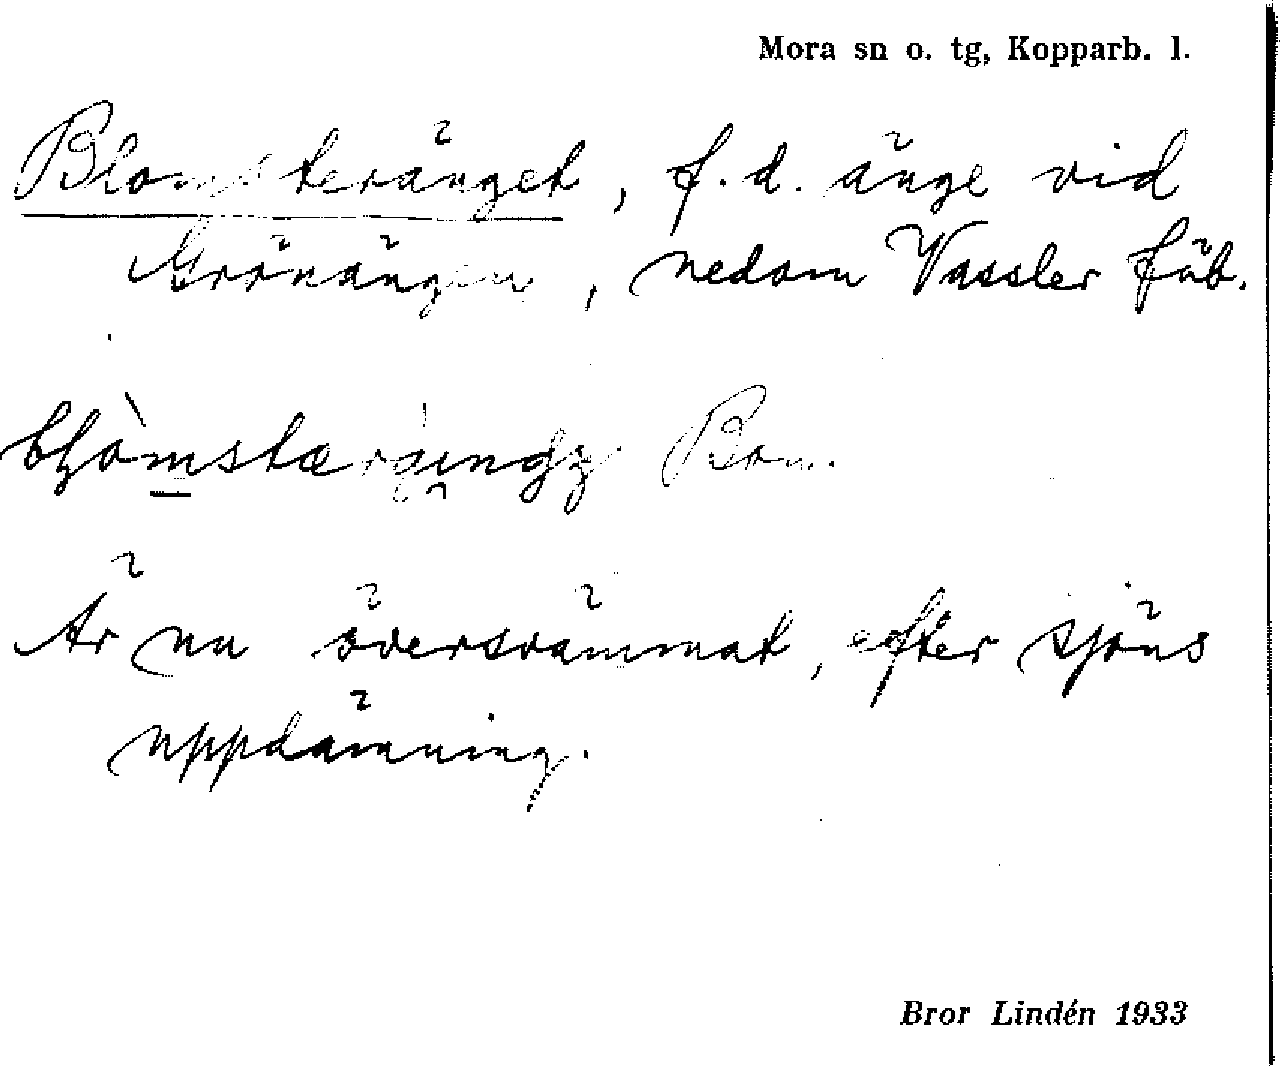 Mora sn o. tg, Kopparb. l.
Blomsteränget, f.d. änge vid
Grönängen, nedom Vassler fäb.
Bon.
Är nu översvämmat, efter sjöns
uppdämning.
Bror Lindén 1933